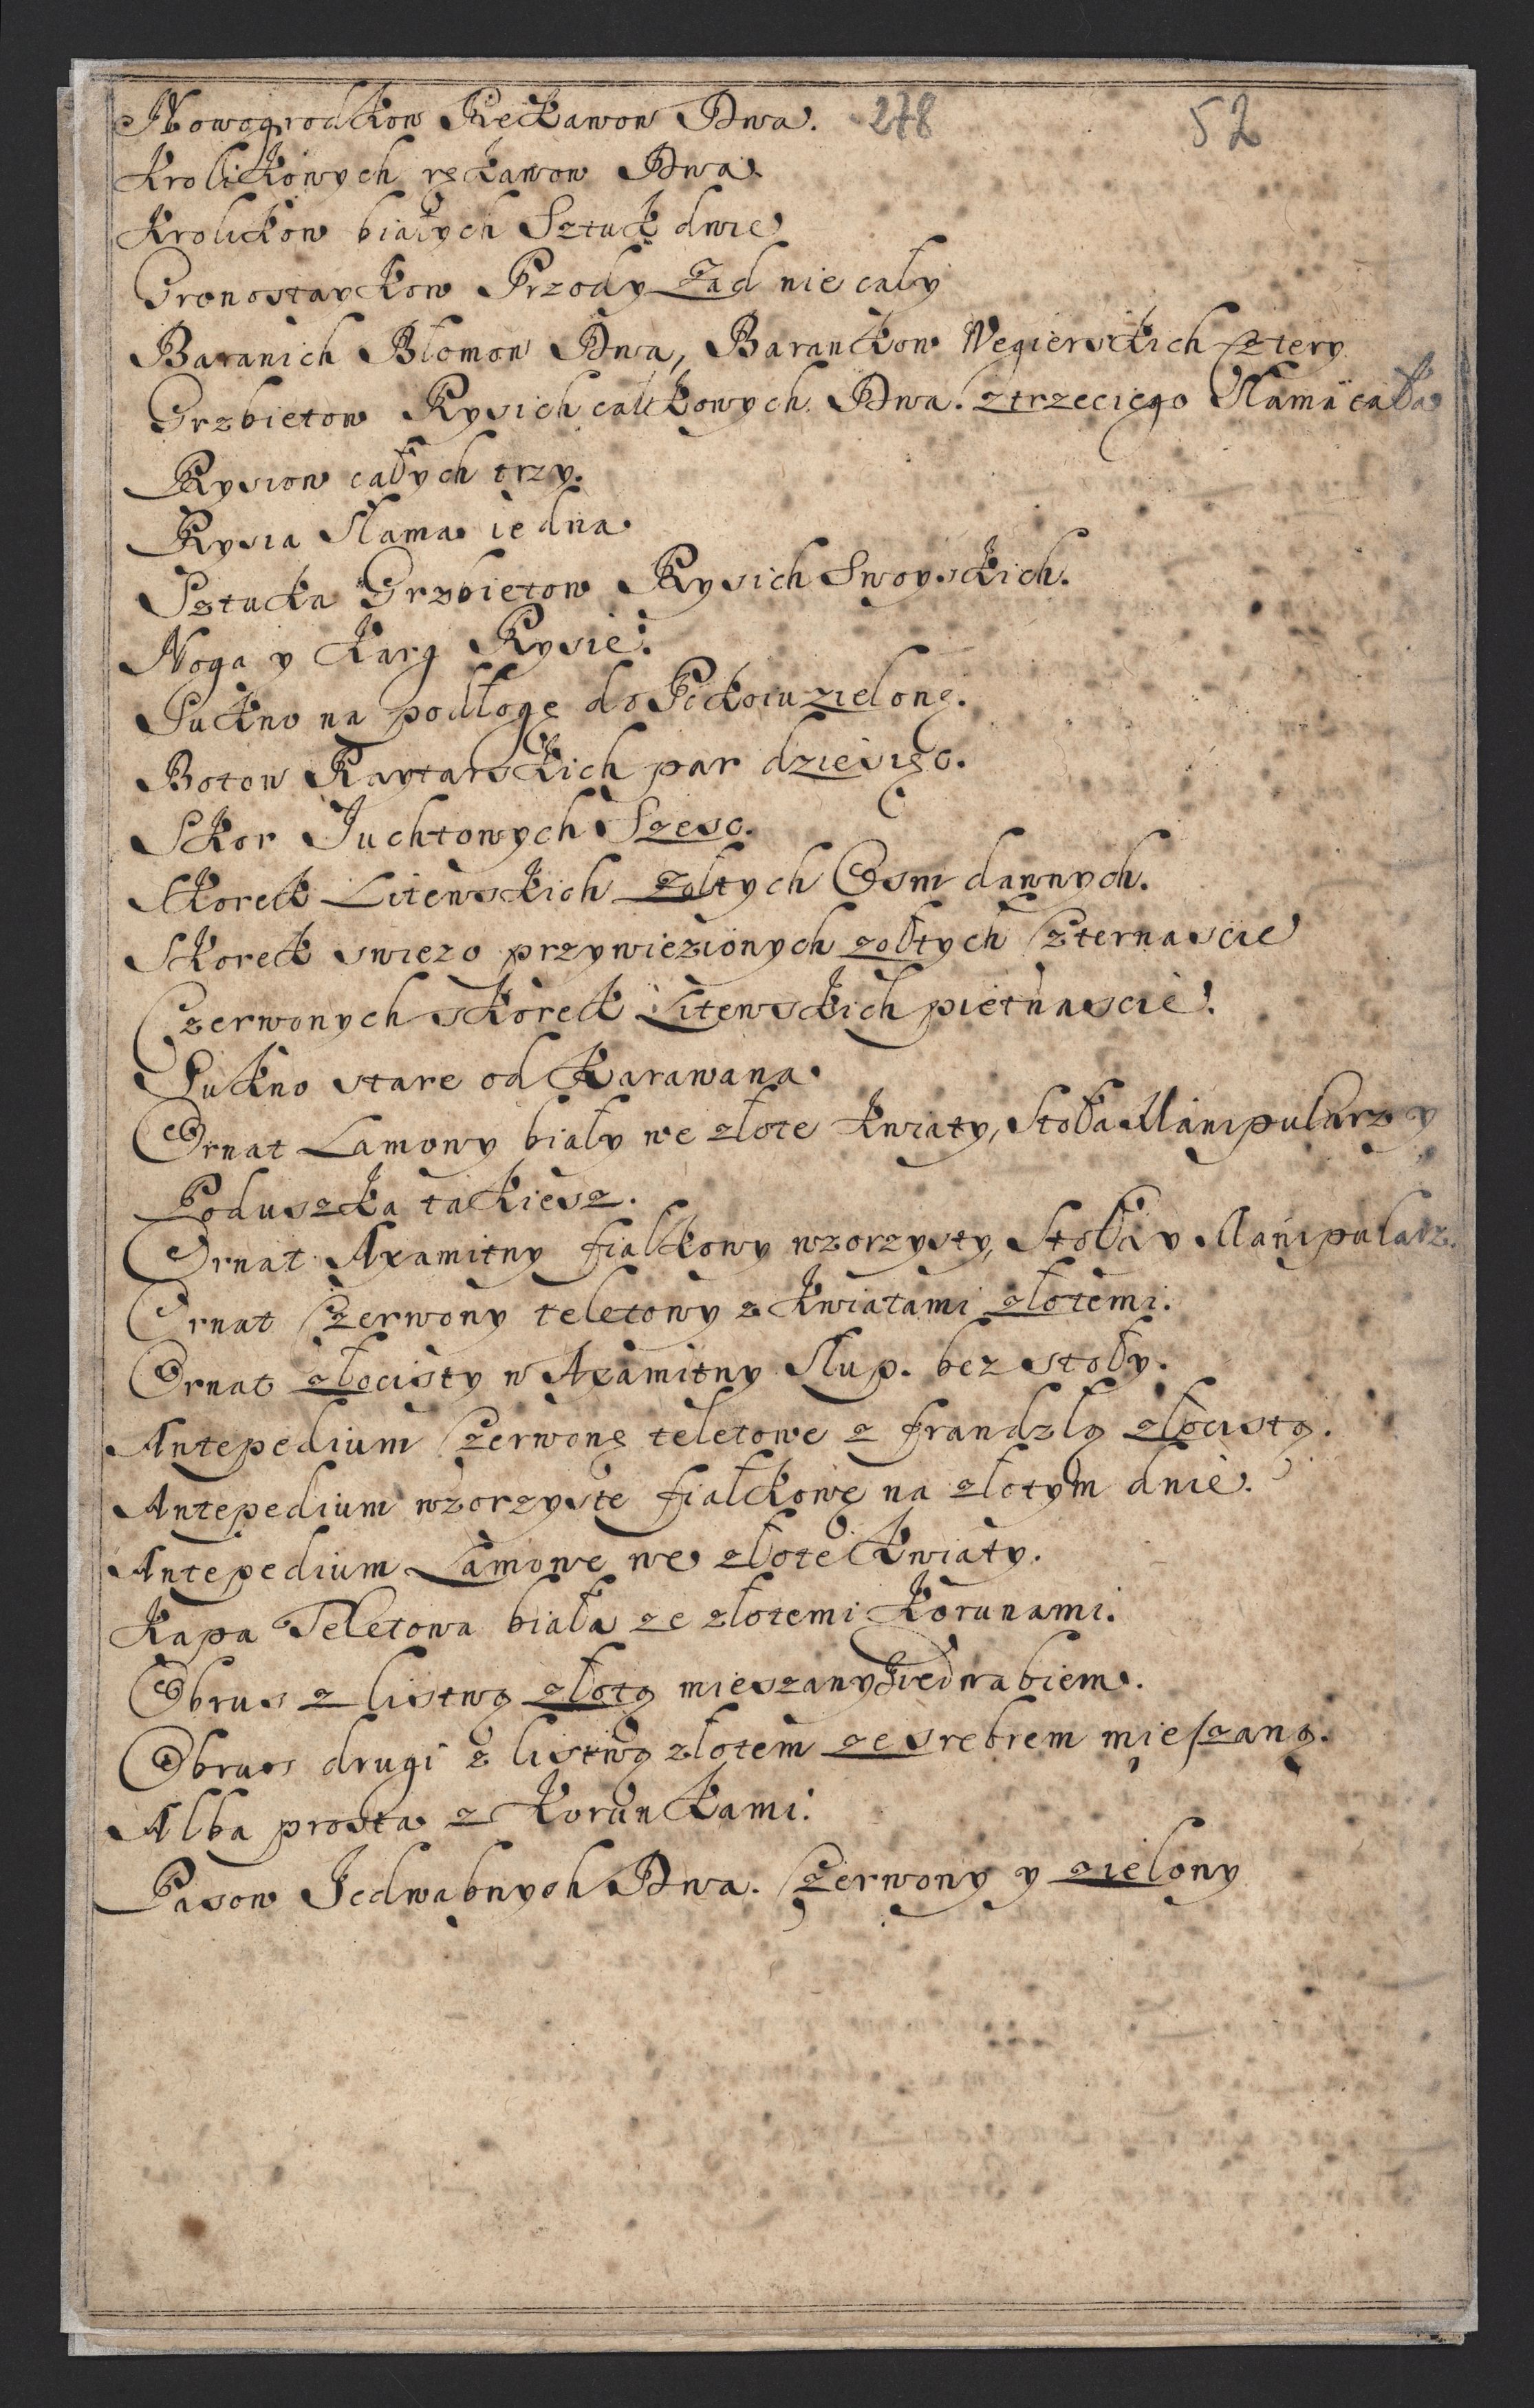 Nowogrodkow Rękawow Dwa. 278 52
Krolikowych rękawow Dwa
Krolikow białych Sztuk dwie
Gronostaykow Przody zad nie cały
Baranich Błomow Dwa, Barankow Węgierskich Cztery
Grzbietow Rysich całkowych Dwa. z trzeciego Slama cała
Rysiow całych trzy.
Rysia Slama iedna
Sztuka Grzbietow Rysich Swoyskich.
Noga y Karg Rysie.
Sukno na podłogę do Pokoiu zielone.
Botow Raytarskich par dziesięc.
Skor Juchtowych Szesc.
Skorek Litewskich zołtych Osm dawnych.
Skorek swiezo przywiezionych zołtych Czternascie
Czerwonych skorek Litewskich piętnascie.
Sukno stare od Karawana.
Ornat Lamowy biały we złote kwiaty, Stoła Manipularz y
Poduszka takiesz.
Ornat Axamitny fiałkowy wzorzysty, Stoła y Manipularz.
Ornat Czerwony teletowy z kwiatami złotemi.
Ornat złocisty w Axamitny Slup. bez stoły.
Antepedium Czerwone teletowe z frandzlą złocistą.
Antepedium wzorzyste fiałkowe na złotym dnie.
Antepedium Lamowe we złote kwiaty.
Kapa Teletowa biała ze złotemi Korunami.
Obrus z listwą złotą mieszany Jedwabiem.
Obrus drugi z listwą złotem ze srebrem mieszaną.
Alba prosta z Korunkami.
Pasow Jedwabnych Dwa. Czerwony y zielony